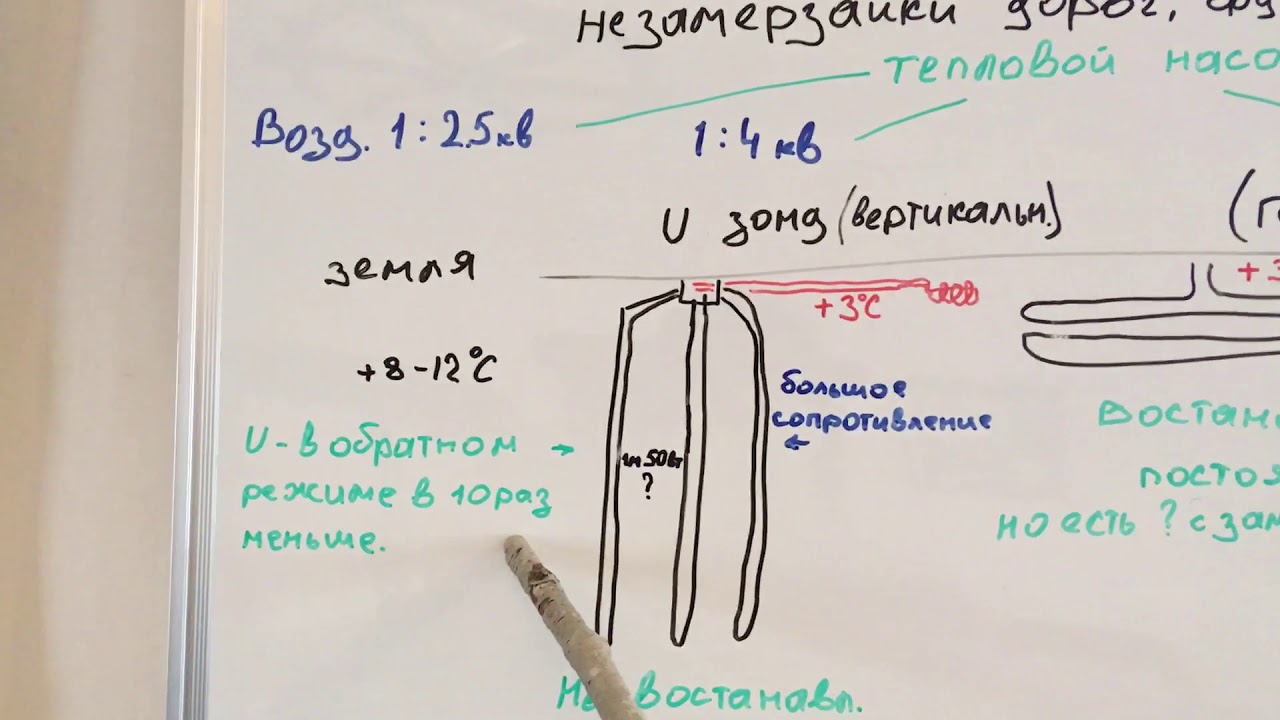 незамерзайки дорог,
тепловой насо
Возд. 1:2.5кв
1:4 кв
U зонд (вертикальн.)
земля
+3°C
+3
+8-12°C
большое
сопротивление
←
U-в обратном →
режиме в 10 раз
меньше.
1м 50вт
?
Востана
постоя
но есть ? с зам
востанавл.